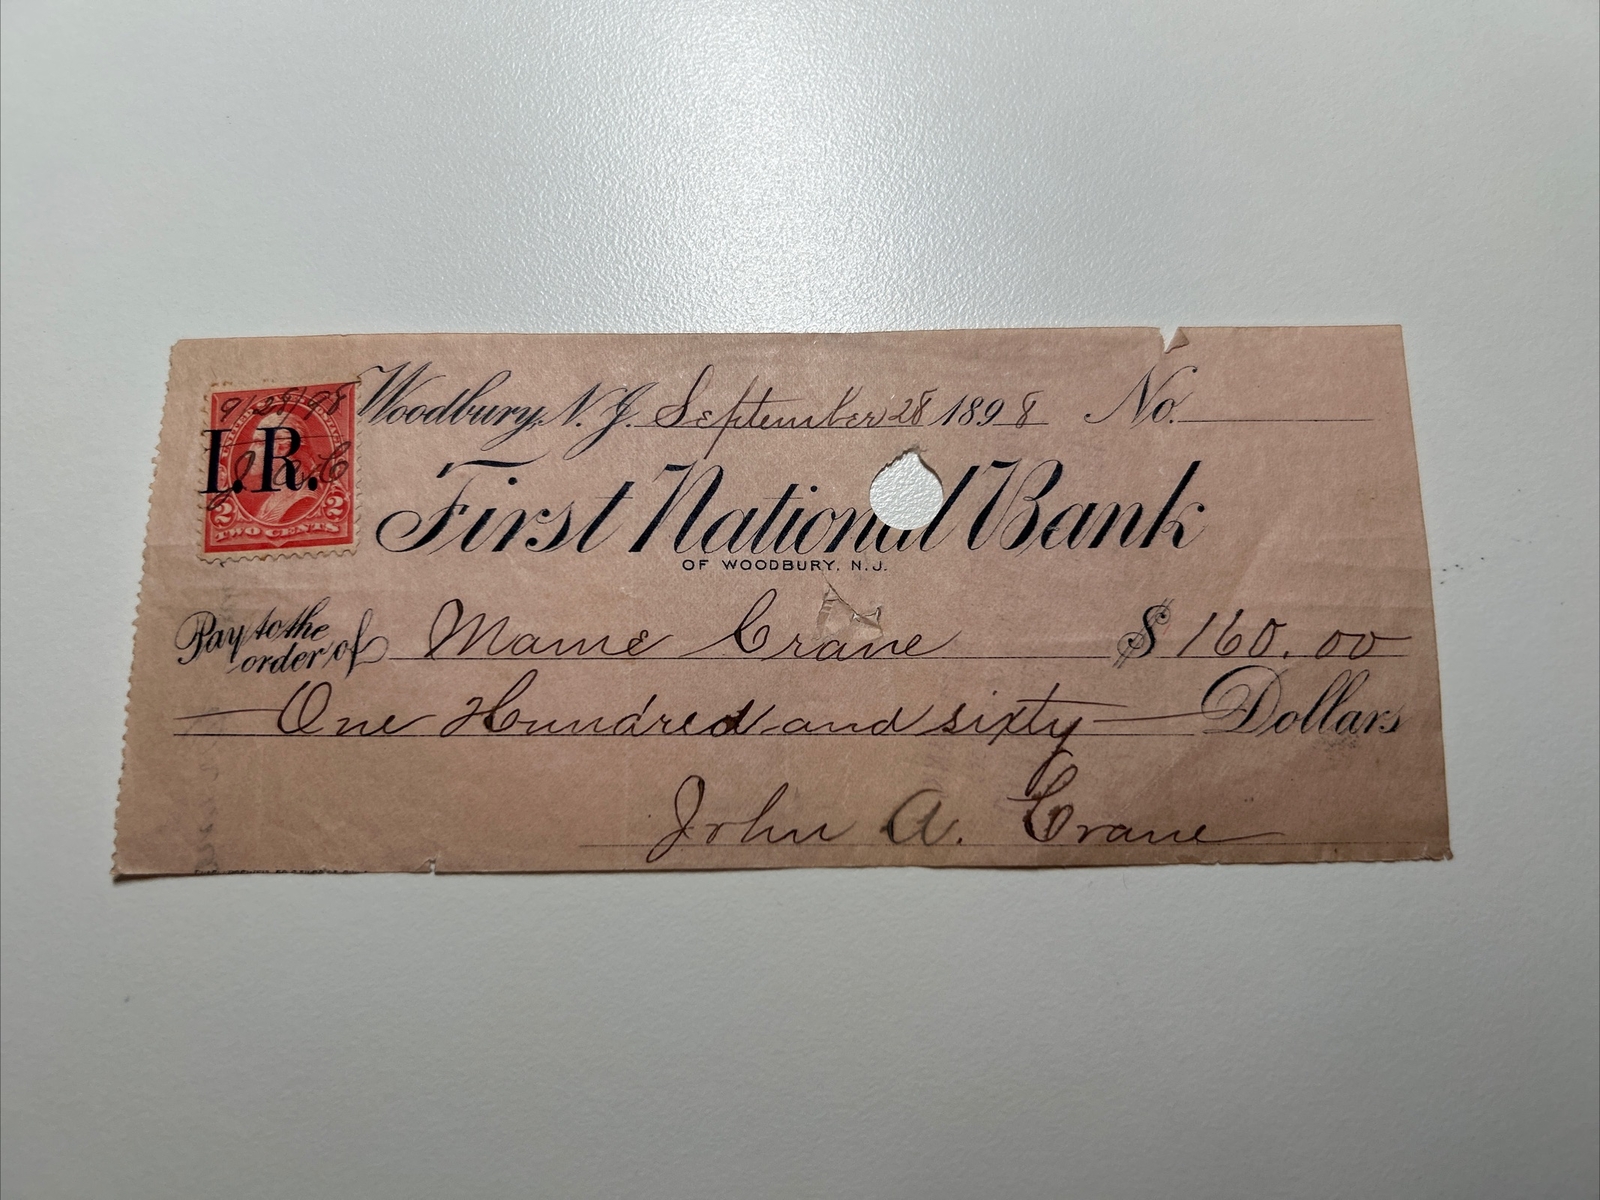 9/28/98
I.R.
J.A.C
2 2
TWO CENTS
Woodbury, N.J. September 28 1898 No.
First National Bank
OF WOODBURY, N.J.
Pay to the order of Mame Crane $160.00
One Hundred and sixty Dollars
John A. Crane